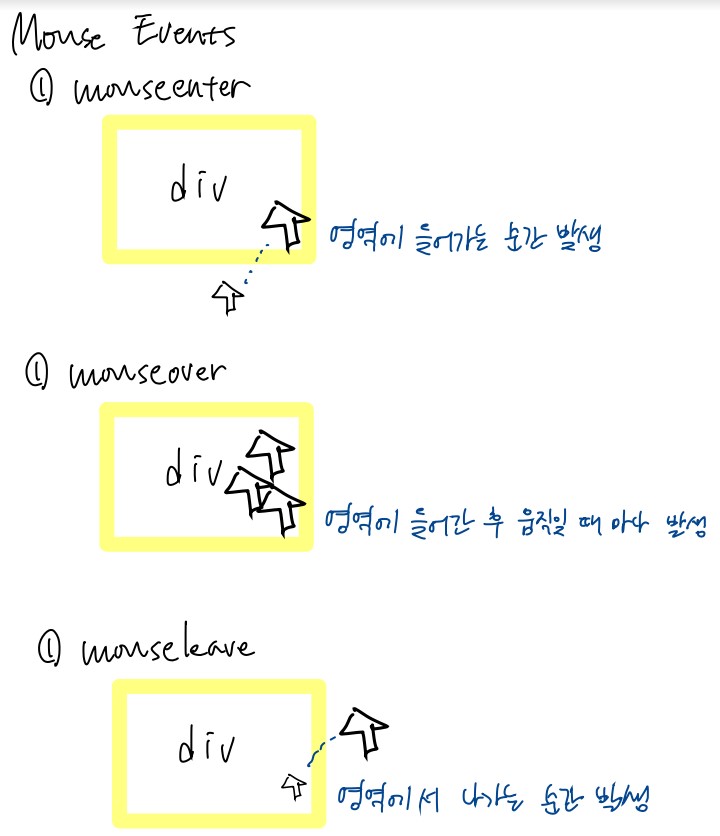 Mouse Events
① mouseenter
div
영역에 들어가는 순간 발생
① mouseover
div
영역에 들어간 후 움직일 때 마다 발생
① mouseleave
div
영역에서 나가는 순간 발생